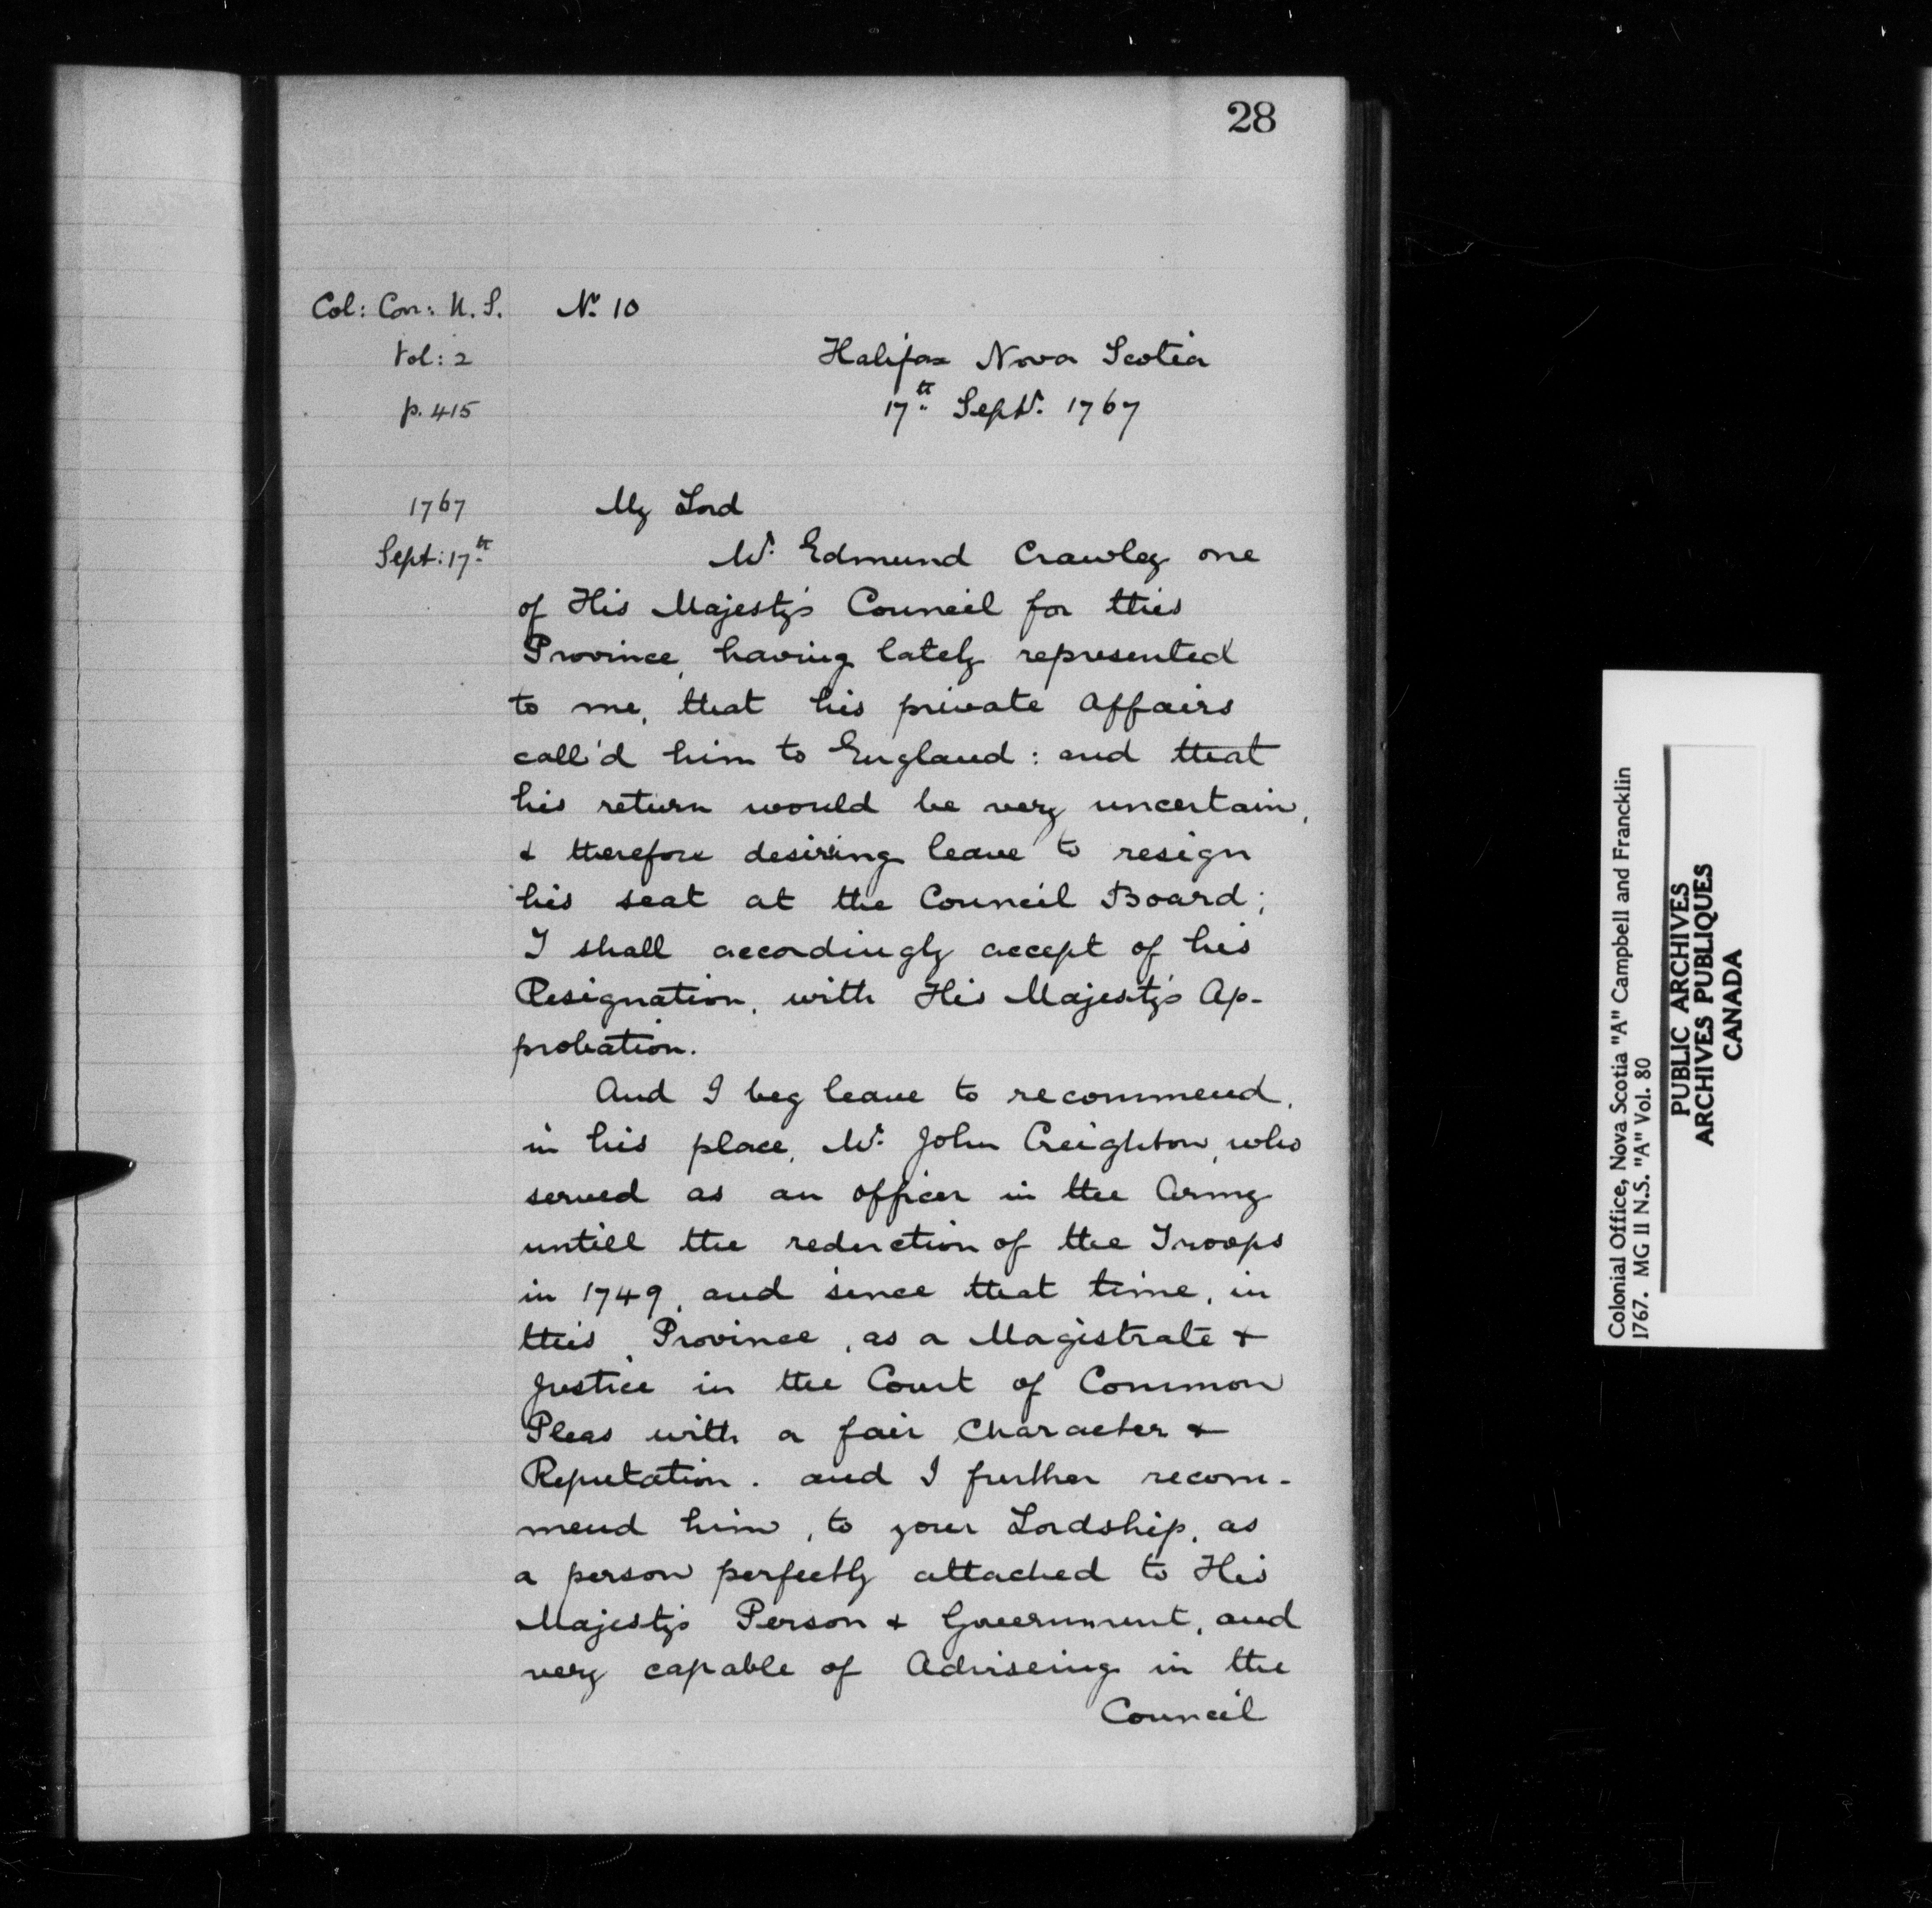 28
Col: Con: N. S.
Vol: 2
p. 415
1767
Sept: 17th
No. 10
Halifax Nova Scotia
17th Septr. 1767
My Lord
Mr. Edmund Crawley one
of His Majesty's Council for this
Province, having lately represented
to me, that his private Affairs
call'd him to England: and that
his return would be very uncertain,
& therefore desireing leave to resign
his seat at the Council Board;
I shall accordingly accept of his
Resignation, with His Majesty's Ap-
probation.
And I beg leave to recommend,
in his place, Mr. John Creighton, who
served as an officer in the Army
untill the reduction of the Troops
in 1749, and since that time, in
this Province, as a Magistrate &
Justice in the Court of Common
Pleas with a fair Character &
Reputation. and I further recom-
mend him, to your Lordship, as
a person perfectly attached to His
Majesty's Person & Government, and
very capable of Adviseing in the
Council
Colonial Office, Nova Scotia "A" Campbell and Francklin
1767. MG II N.S. "A" Vol. 80
PUBLIC ARCHIVES
ARCHIVES PUBLIQUES
CANADA